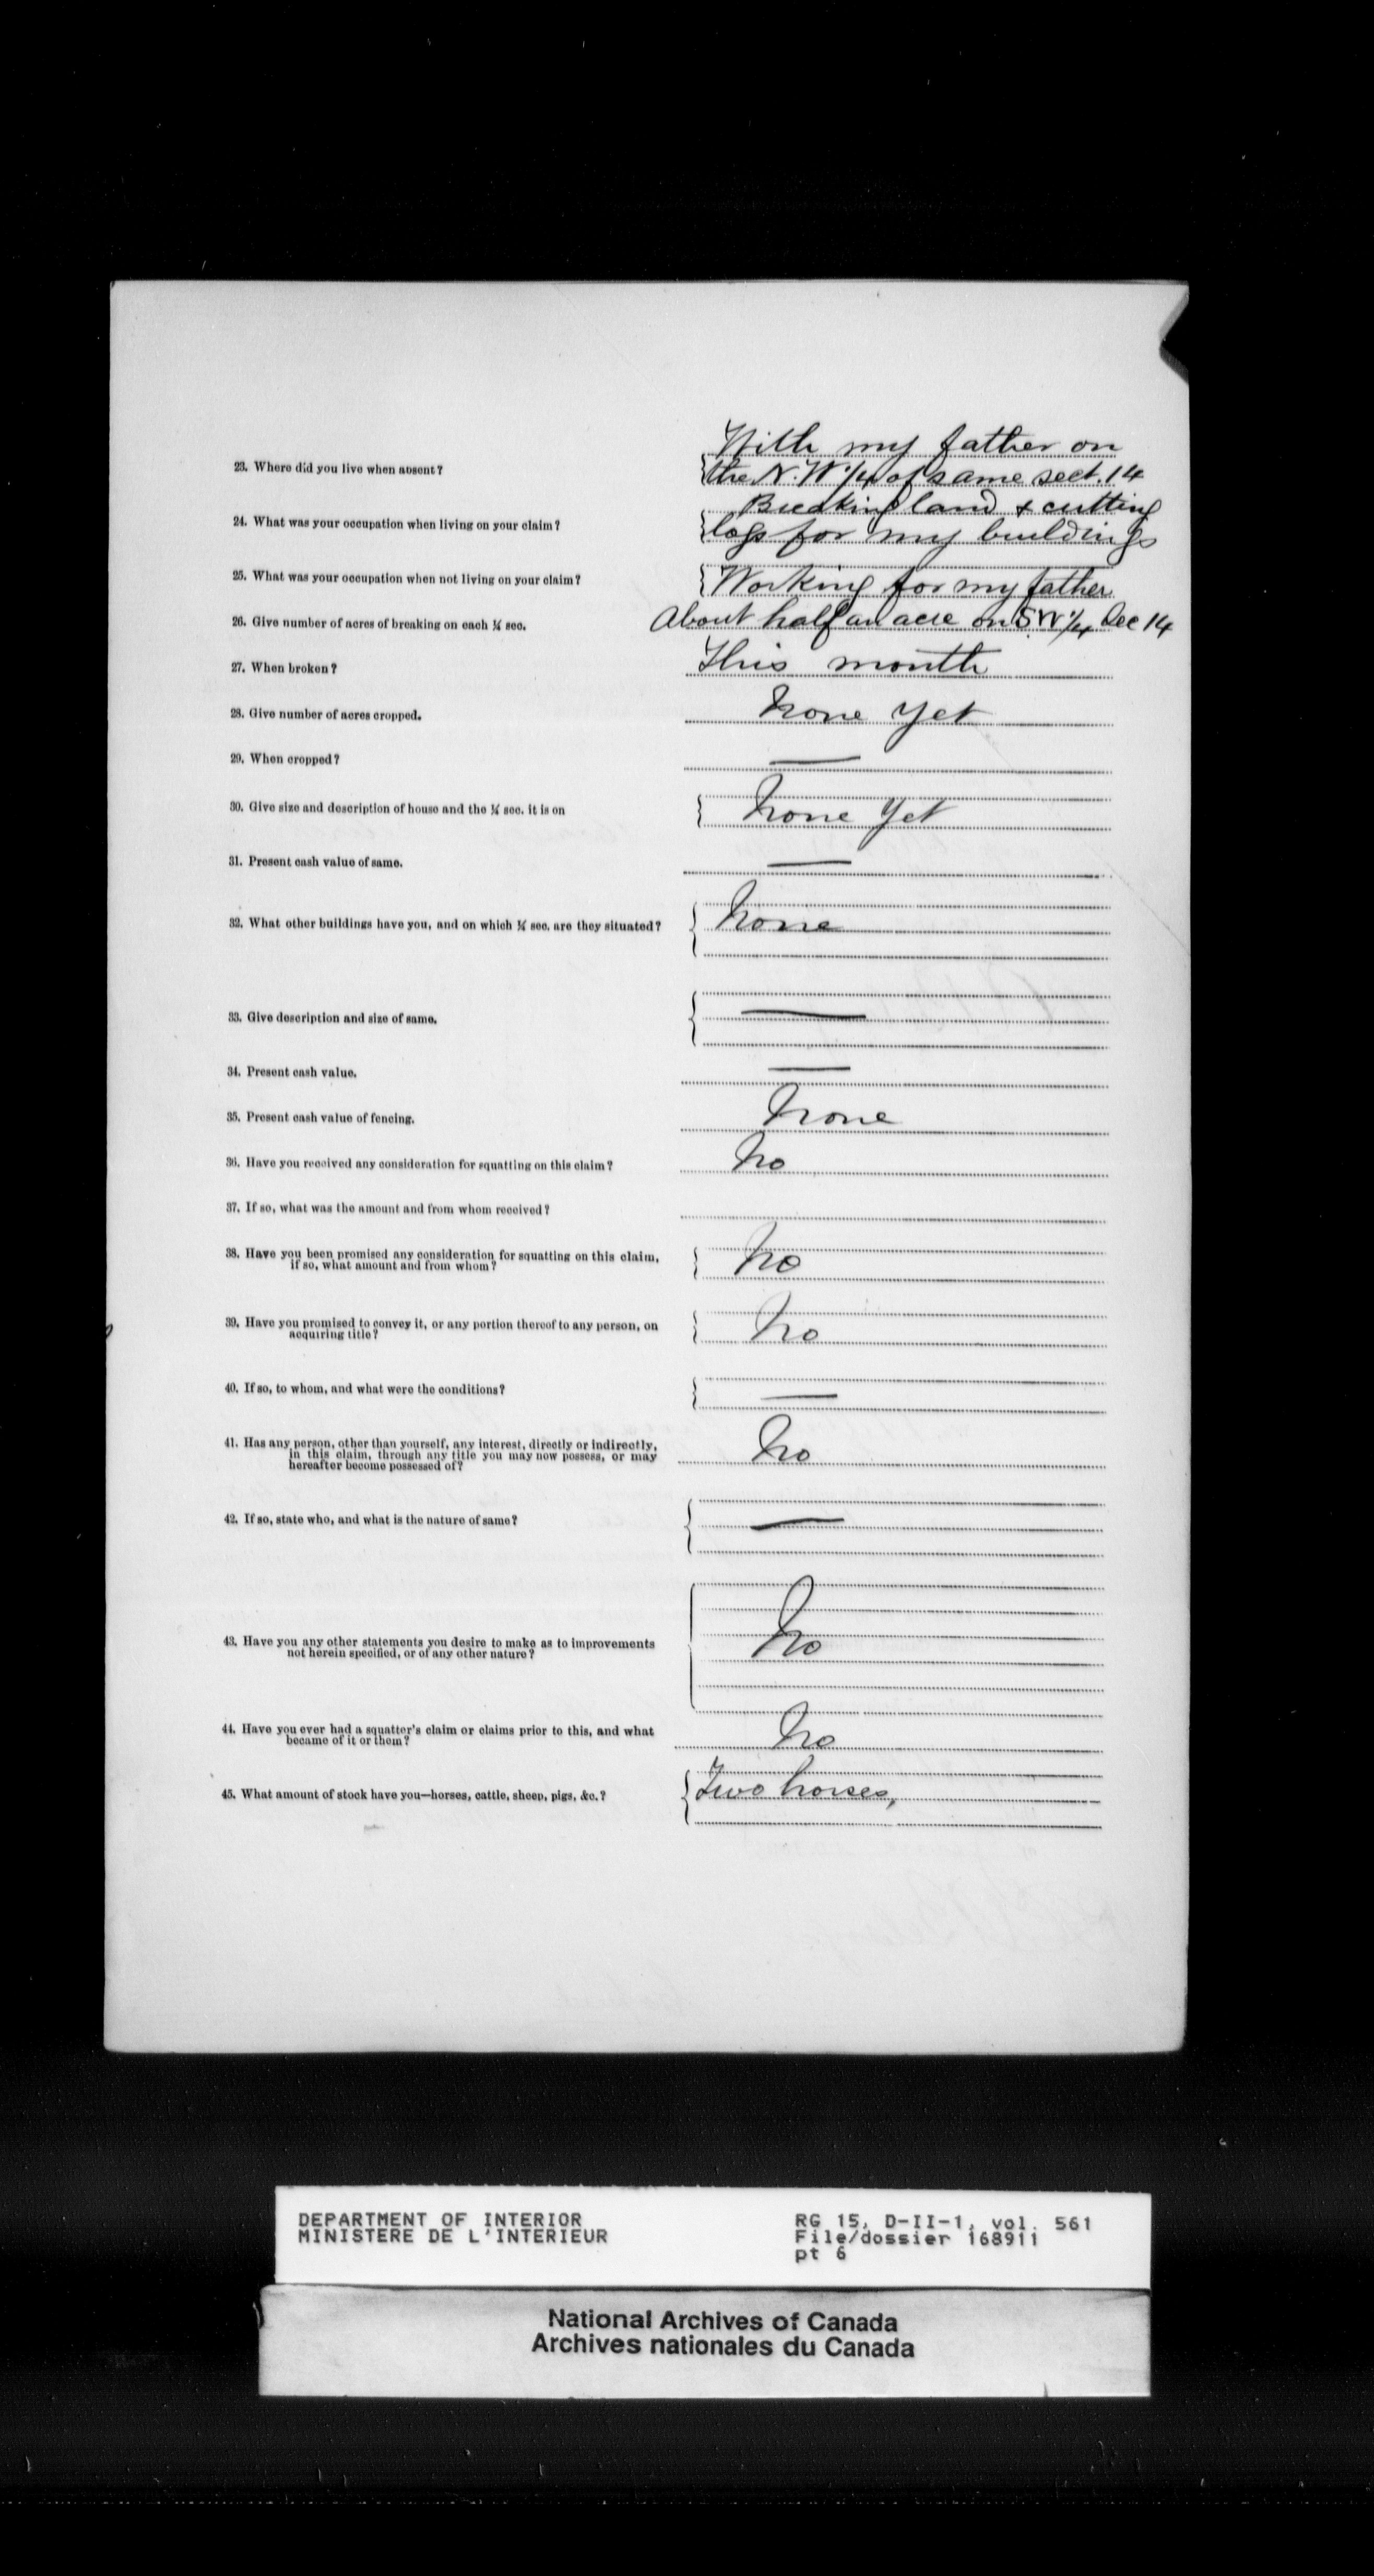 With my father on
23. Where did you live when absent? the N.W 1/4 of same sect. 14
Breaking land & cutting
24. What was your occupation when living on your claim? logs for my buildings
25. What was your occupation when not living on your claim? Working for my father
26. Give number of acres of breaking on each ¼ sec. About half an acre on S W 1/4 Sec 14
27. When broken? This month
28. Give number of acres cropped. None yet
29. When cropped? —
30. Give size and description of house and the ¼ sec. it is on None yet
31. Present cash value of same. —
32. What other buildings have you, and on which ¼ sec. are they situated? None
33. Give description and size of same. —
34. Present cash value. —
35. Present cash value of fencing. None
36. Have you received any consideration for squatting on this claim? No
37. If so, what was the amount and from whom received?
38. Have you been promised any consideration for squatting on this claim,
if so, what amount and from whom? No
39. Have you promised to convey it, or any portion thereof to any person, on
acquiring title? No
40. If so, to whom, and what were the conditions? —
41. Has any person, other than yourself, any interest, directly or indirectly,
in this claim, through any title you may now possess, or may
hereafter become possessed of? No
42. If so, state who, and what is the nature of same? —
43. Have you any other statements you desire to make as to improvements
not herein specified, or of any other nature? No
44. Have you ever had a squatter's claim or claims prior to this, and what
became of it or them? No
45. What amount of stock have you—horses, cattle, sheep, pigs, &c.? Two horses,
DEPARTMENT OF INTERIOR
MINISTERE DE L'INTERIEUR
RG 15, D-II-1, vol. 561
File/dossier 168911
pt 6
National Archives of Canada
Archives nationales du Canada